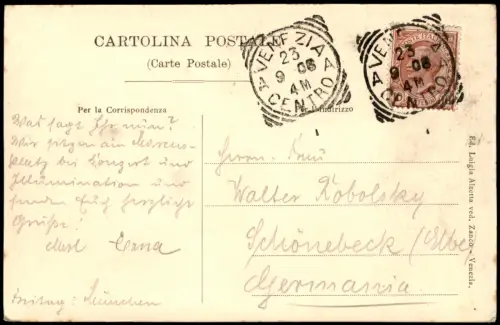 CARTOLINA POSTALE
(Carte Postale)
VENEZIA
23
9 06
4 M
CENTRO
VENEZIA
23
9 06
4 M
CENTRO
Per la Corrispondenza
Per l'indirizzo
Was sagt Ihr nun?
Wir sitzen am Marcus-
platz bei Konzert und
Illumination und
senden Euch herzliche
Grüße!
Erna
Freitag: München
Herrn
Walter Kobolsky
Schönebeck (Elbe)
Germania
Ed. Luigia Alzetta ved. Zanco - Venezia.